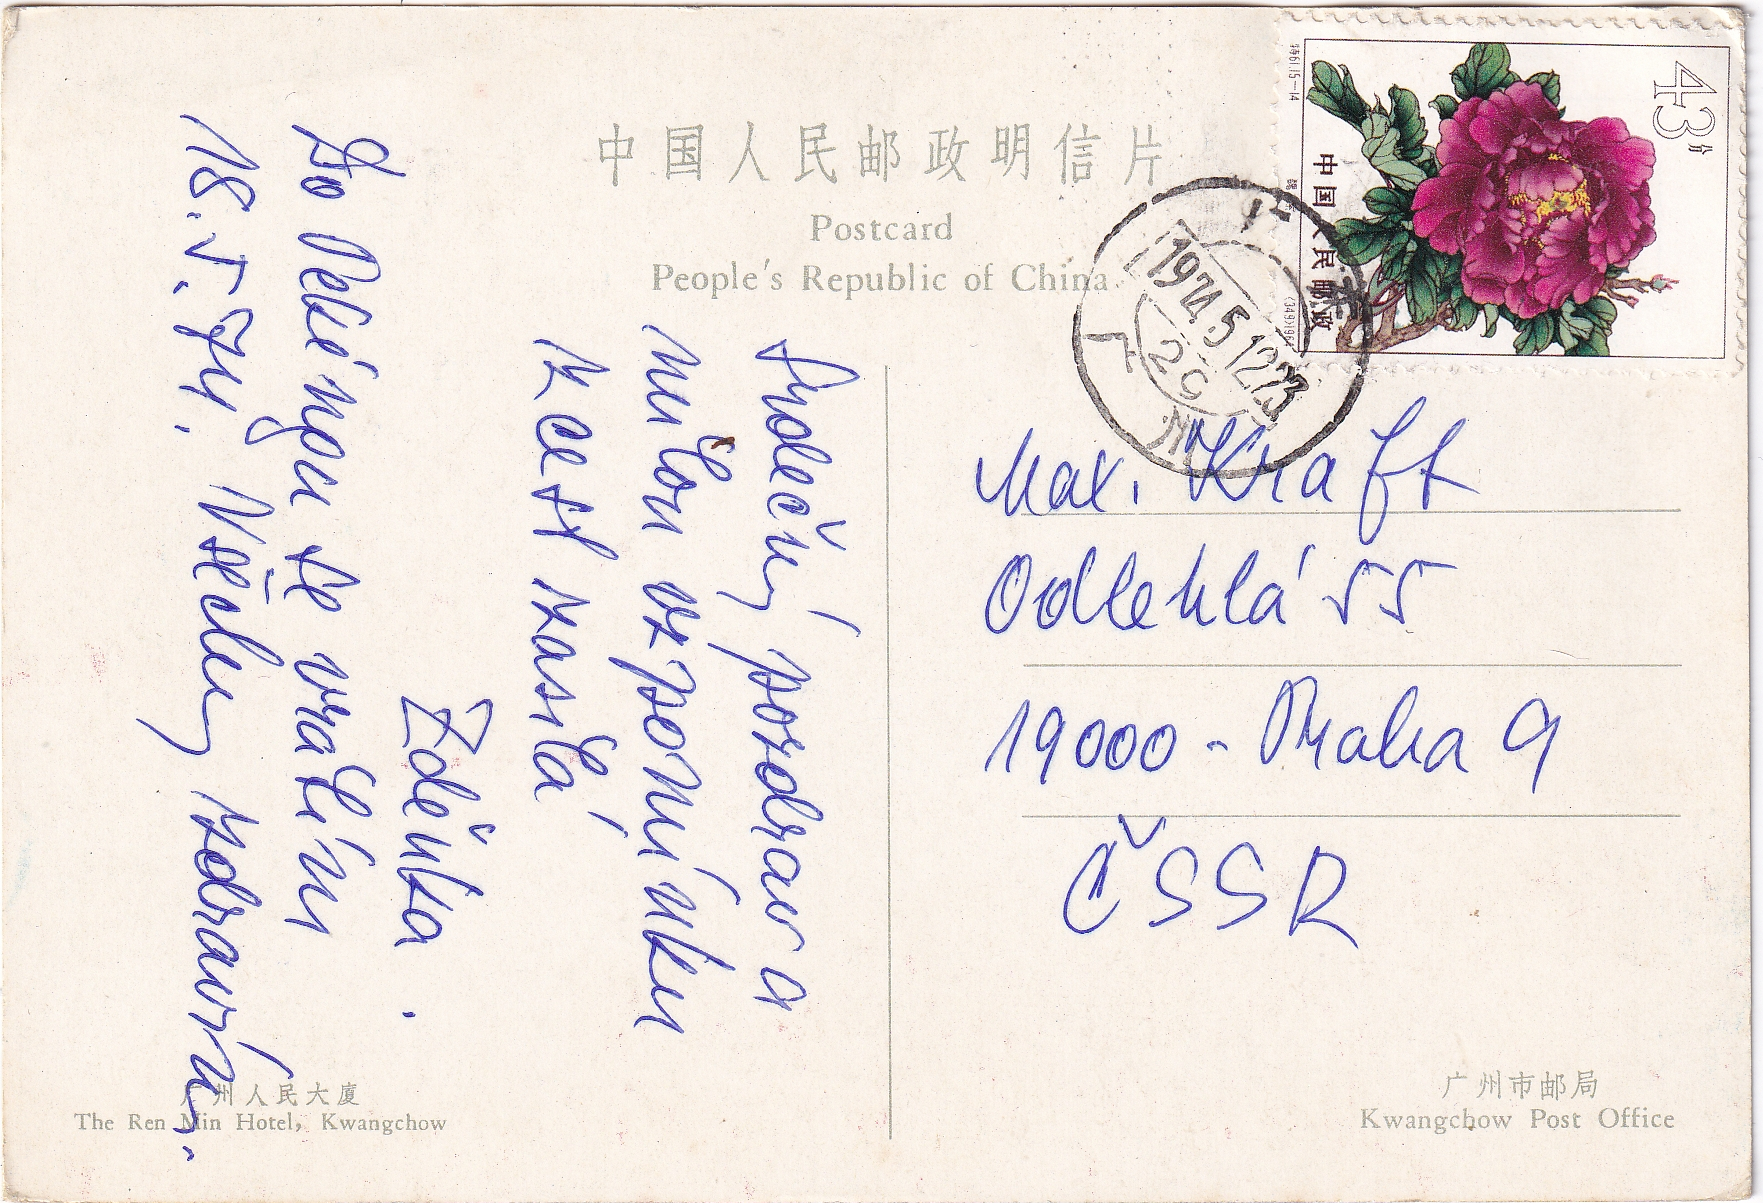 中国人民邮政明信片
Postcard
People's Republic of China
43分
中国人民邮政
特61.15-14
1974.5.12.23
Srdečný pozdrav a
milou vzpomínku
z cest zasílá
Zdeňka.
Do Pekingu se vrátím
18.5.74. Všechny zdravím.
Max. Kraft
Odlehlá 55
19000 - Praha 9
ČSSR
广州人民大厦
The Ren Min Hotel, Kwangchow
广州市邮局
Kwangchow Post Office